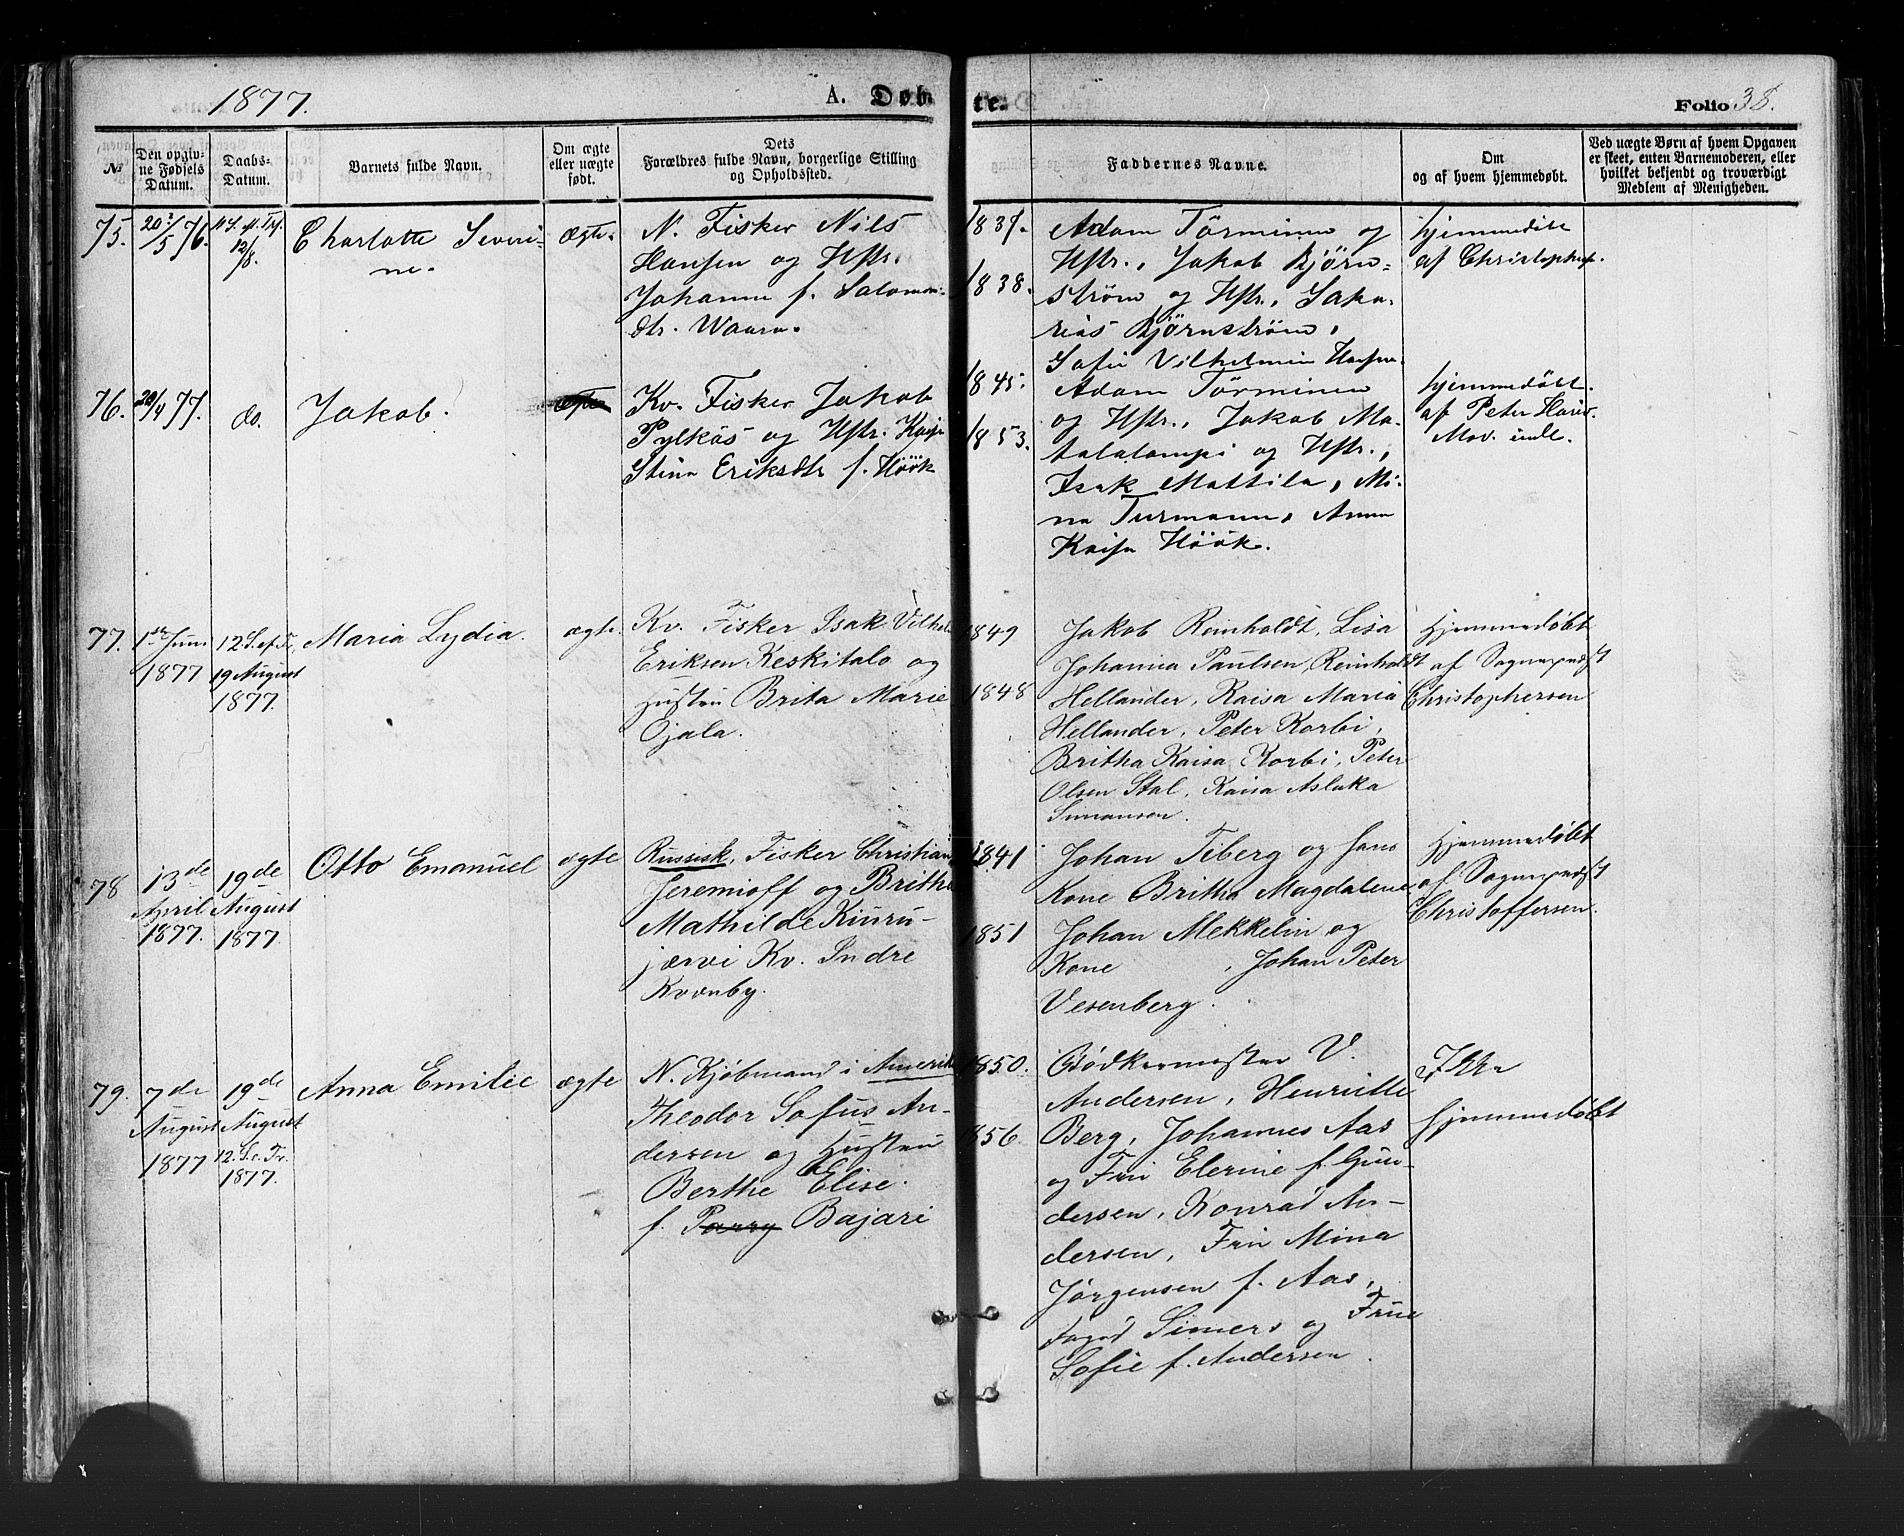 1877.
A. Døb
te.
Folio 38.
№
Den opgiv-
ne Fødsels
Datum.
Daabs-
Datum.
Barnets fulde Navn.
Om ægte
eller uægte
født.
Dets
Forældres fulde Navn, borgerlige Stilling
og Opholdsted.
Faddernes Navne.
Om
og af hvem hjemmedøbt.
Ved uægte Børn af hvem Opgaven
er skeet, enten Barnemoderen, eller
hvilket bekjendt og troværdigt
Medlem af Menigheden.
75.
76.
12/8.
Charlotte Severi-
ne.
Ægte.
N. Fisker Nils
Hansen og Hstr.
Johanne f. Salomon-
dtr. Waara.
1837.
1838.
Adam Törminen og
Hstr., Jakob Bjørn-
strøm og Hstr., Saka-
rias Bjørnstrøm,
Sofie Vilhelmin
hjemmedøbt
af Christophers.
76.
20/4 77.
do.
Jakob.
Ægte
Kv. Fisker Jakob
Pylkäs og Hstr. Kaisa
Stina Eriksdtr f. Höök
1845.
1853.
Adam Törminen
og Hstr., Jakob Ma-
talalampi og Hstr.,
Isak Mattila, Mi-
na Turmann, Anna
Kaisa Höök.
hjemmedøbt
af Peter
77.
1ste Juni
1877
12. S. ef. Tr.
19 August
1877.
Maria Lydia.
ægte.
Kv. Fisker Isak Vilhelm
Eriksen Keskitalo og
Hustru Brita Marie
Ojala.
1849
1848
Jakob Reinholdt, Lisa
Johanna Paulsen, Reinholdt
Hellander, Kaisa Maria
Hellander, Peter Korbi,
Britha Kaisa Korbi, Peter
Olsen Stal, Kaisa Aslaka
Simonsen.
Hjemmedøbt
af Sognepræst
Christophersen
78
13de
April
1877.
19de
August
1877
Otto Emanuel
ægte
Russisk, Fisker Christian
Jeremioff og Britha
Mathilde Kinru-
jærvi Kv. Indre
Kvænby.
1841
1851
Johan Fiberg og hans
Kone Britha Magdalene,
Johan Mekkelin og
Kone , Johan Peter
Vesenberg.
Hjemmedøbt
af Sognepræst
Christoffersen.
79.
7de
August
1877
19de
August
12. S. e. Tr.
1877.
Anna Emilie
ægte
N. Kjøbmand i Amerika
Theodor Sofus An-
dersen og Hustru
Berthe Elise.
f. Parry Bajari
1850.
1856
Bødkermester V.
Andersen, Henriette
Berg, Johannes Aas
og Fru Elerine f. Gun-
dersen, Konrad An-
dersen, Fru Mina
Jørgensen f. Aas,
Foged Simers og Frue
Sofie f. Andersen.
Ikke
hjemmedøbt